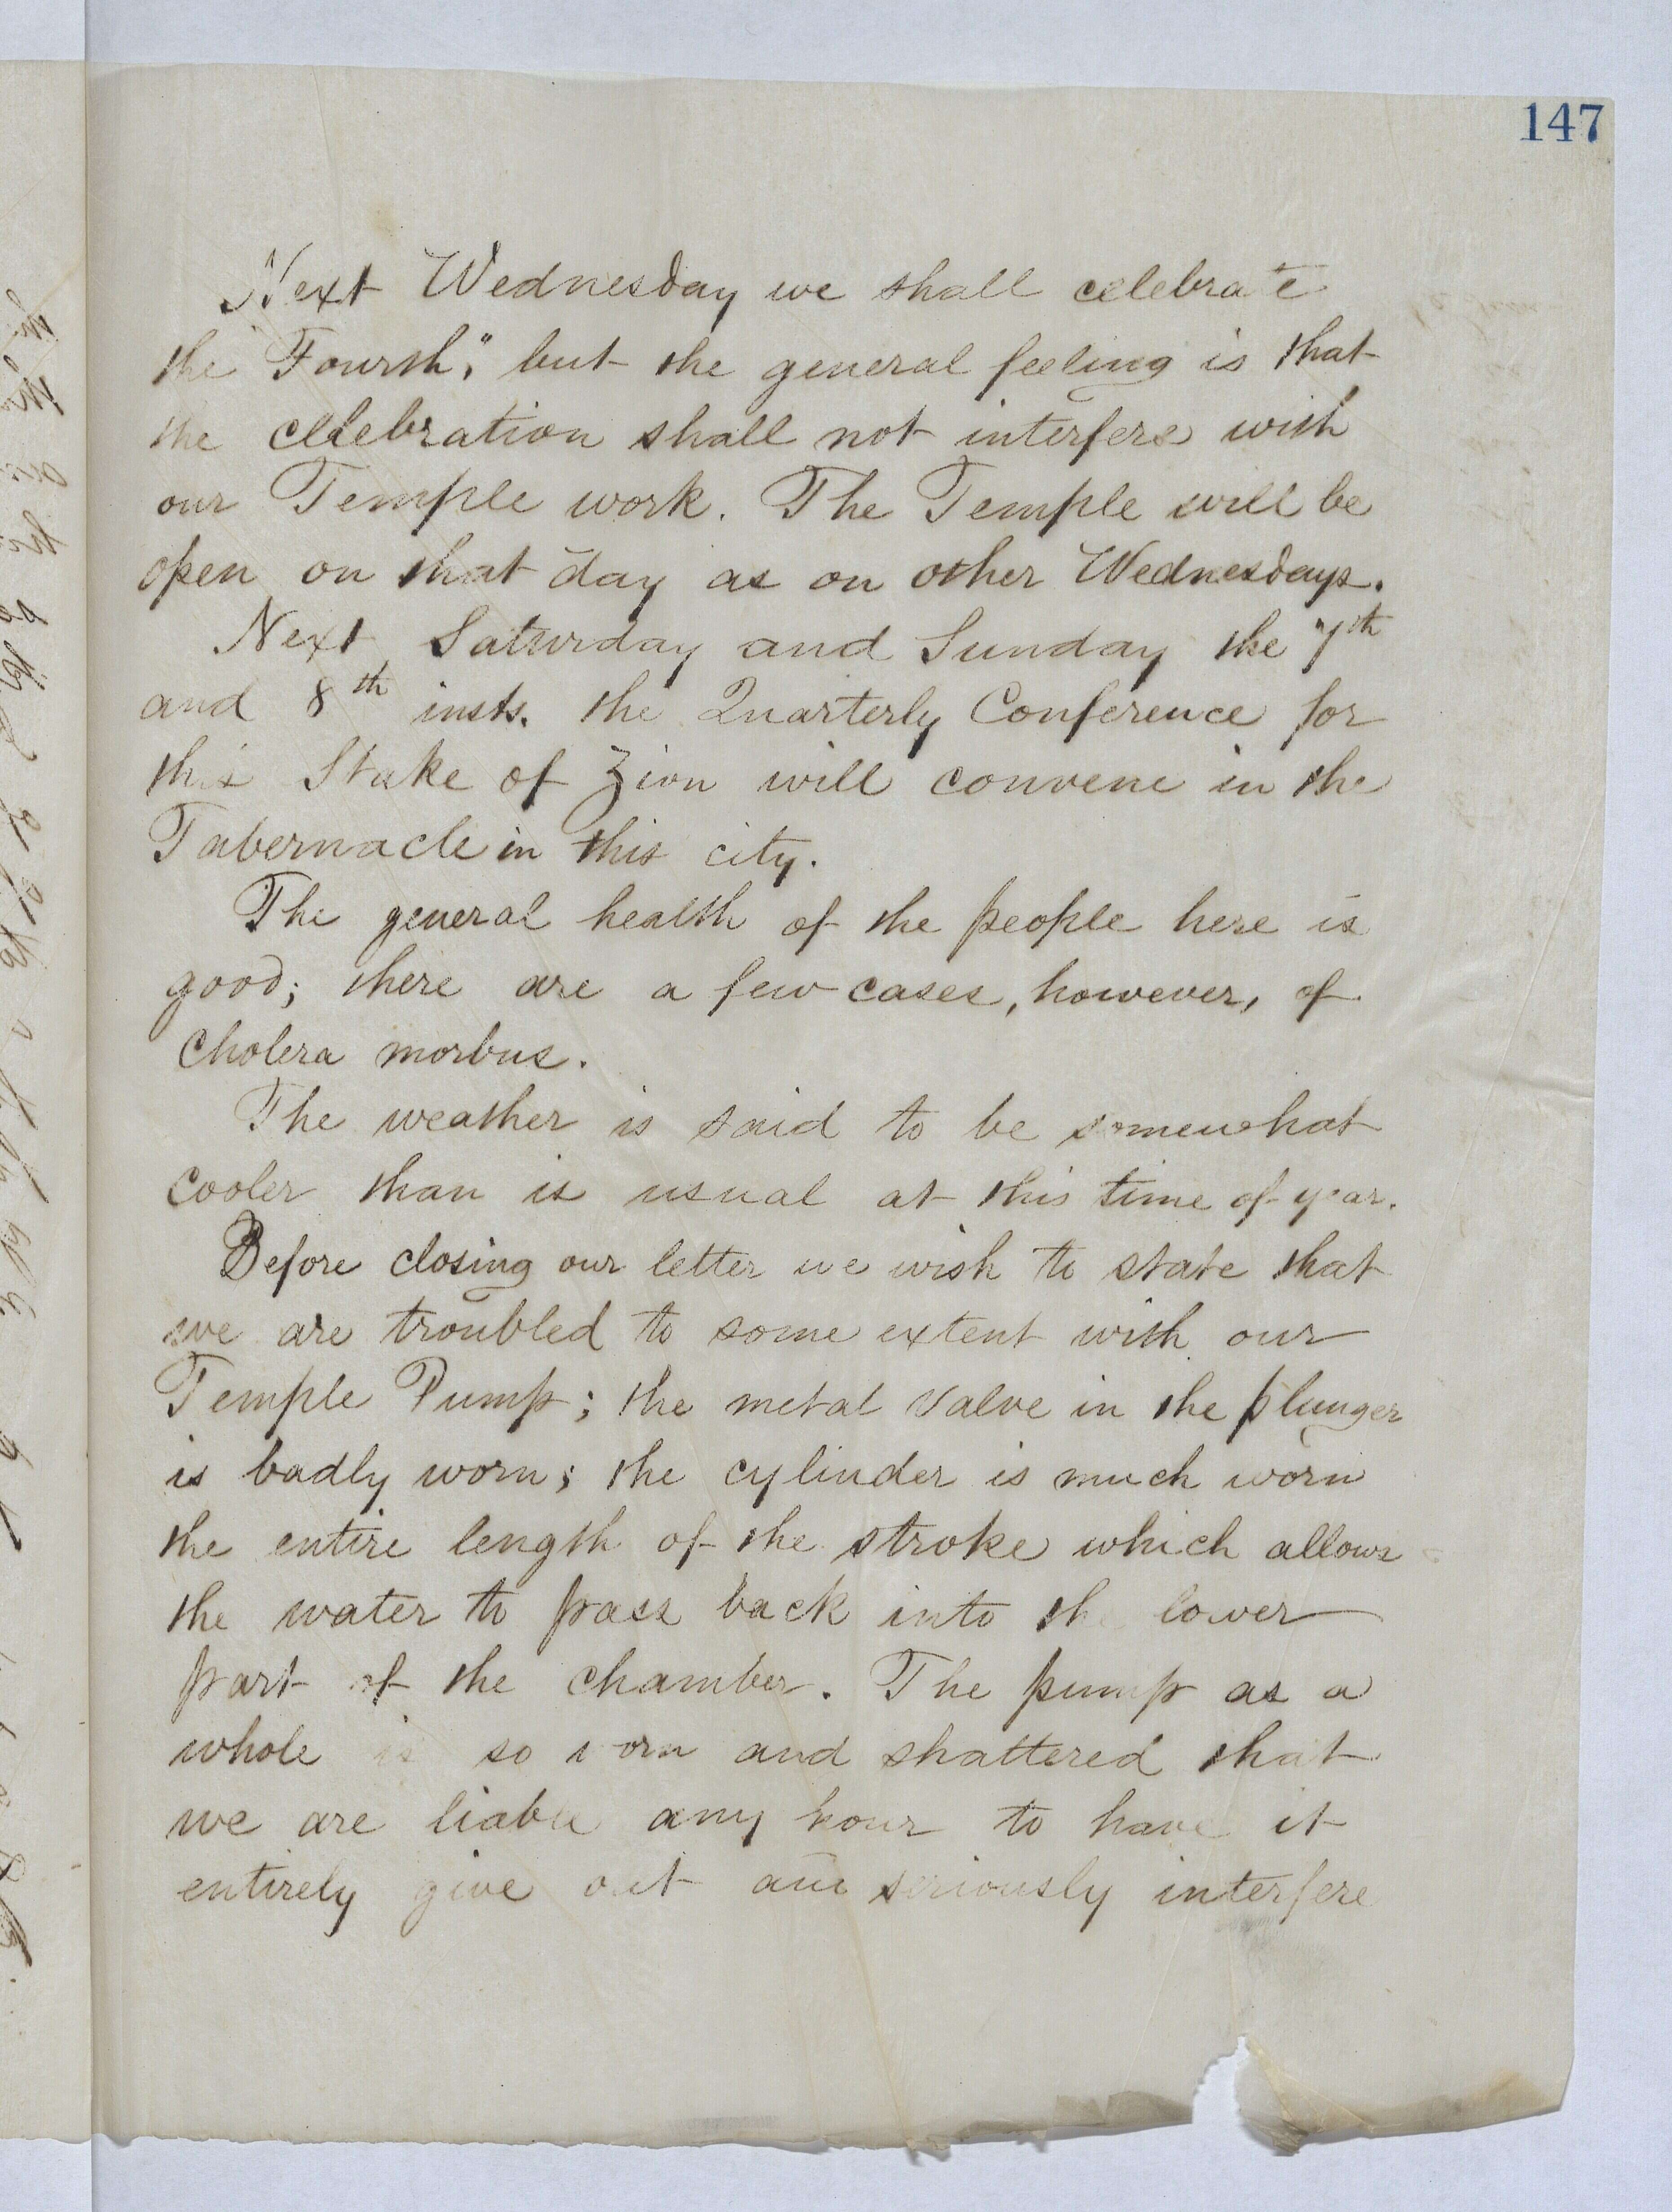 147
Next Wednesday we shall celebrate
the "Fourth," but the general feeling is that
the celebration shall not interfere with
our Temple work. The Temple will be
open on that day as on other Wednesdays.
Next Saturday and Sunday the 7th
and 8th insts. the Quarterly Conference for
this Stake of Zion will convene in the
Tabernacle in this city.
The general health of the people here is
good; there are a few cases, however, of
cholera morbus.
The weather is said to be somewhat
cooler than is usual at this time of year.
Before closing our letter we wish to state that
we are troubled to some extent with our
Temple Pump; the metal valve in the plunger
is badly worn; the cylinder is much worn
the entire length of the stroke which allows
the water to pass back into the lower
part of the chamber. The pump as a
whole is so worn and shattered that
we are liable any hour to have it
entirely give out and seriously interfere